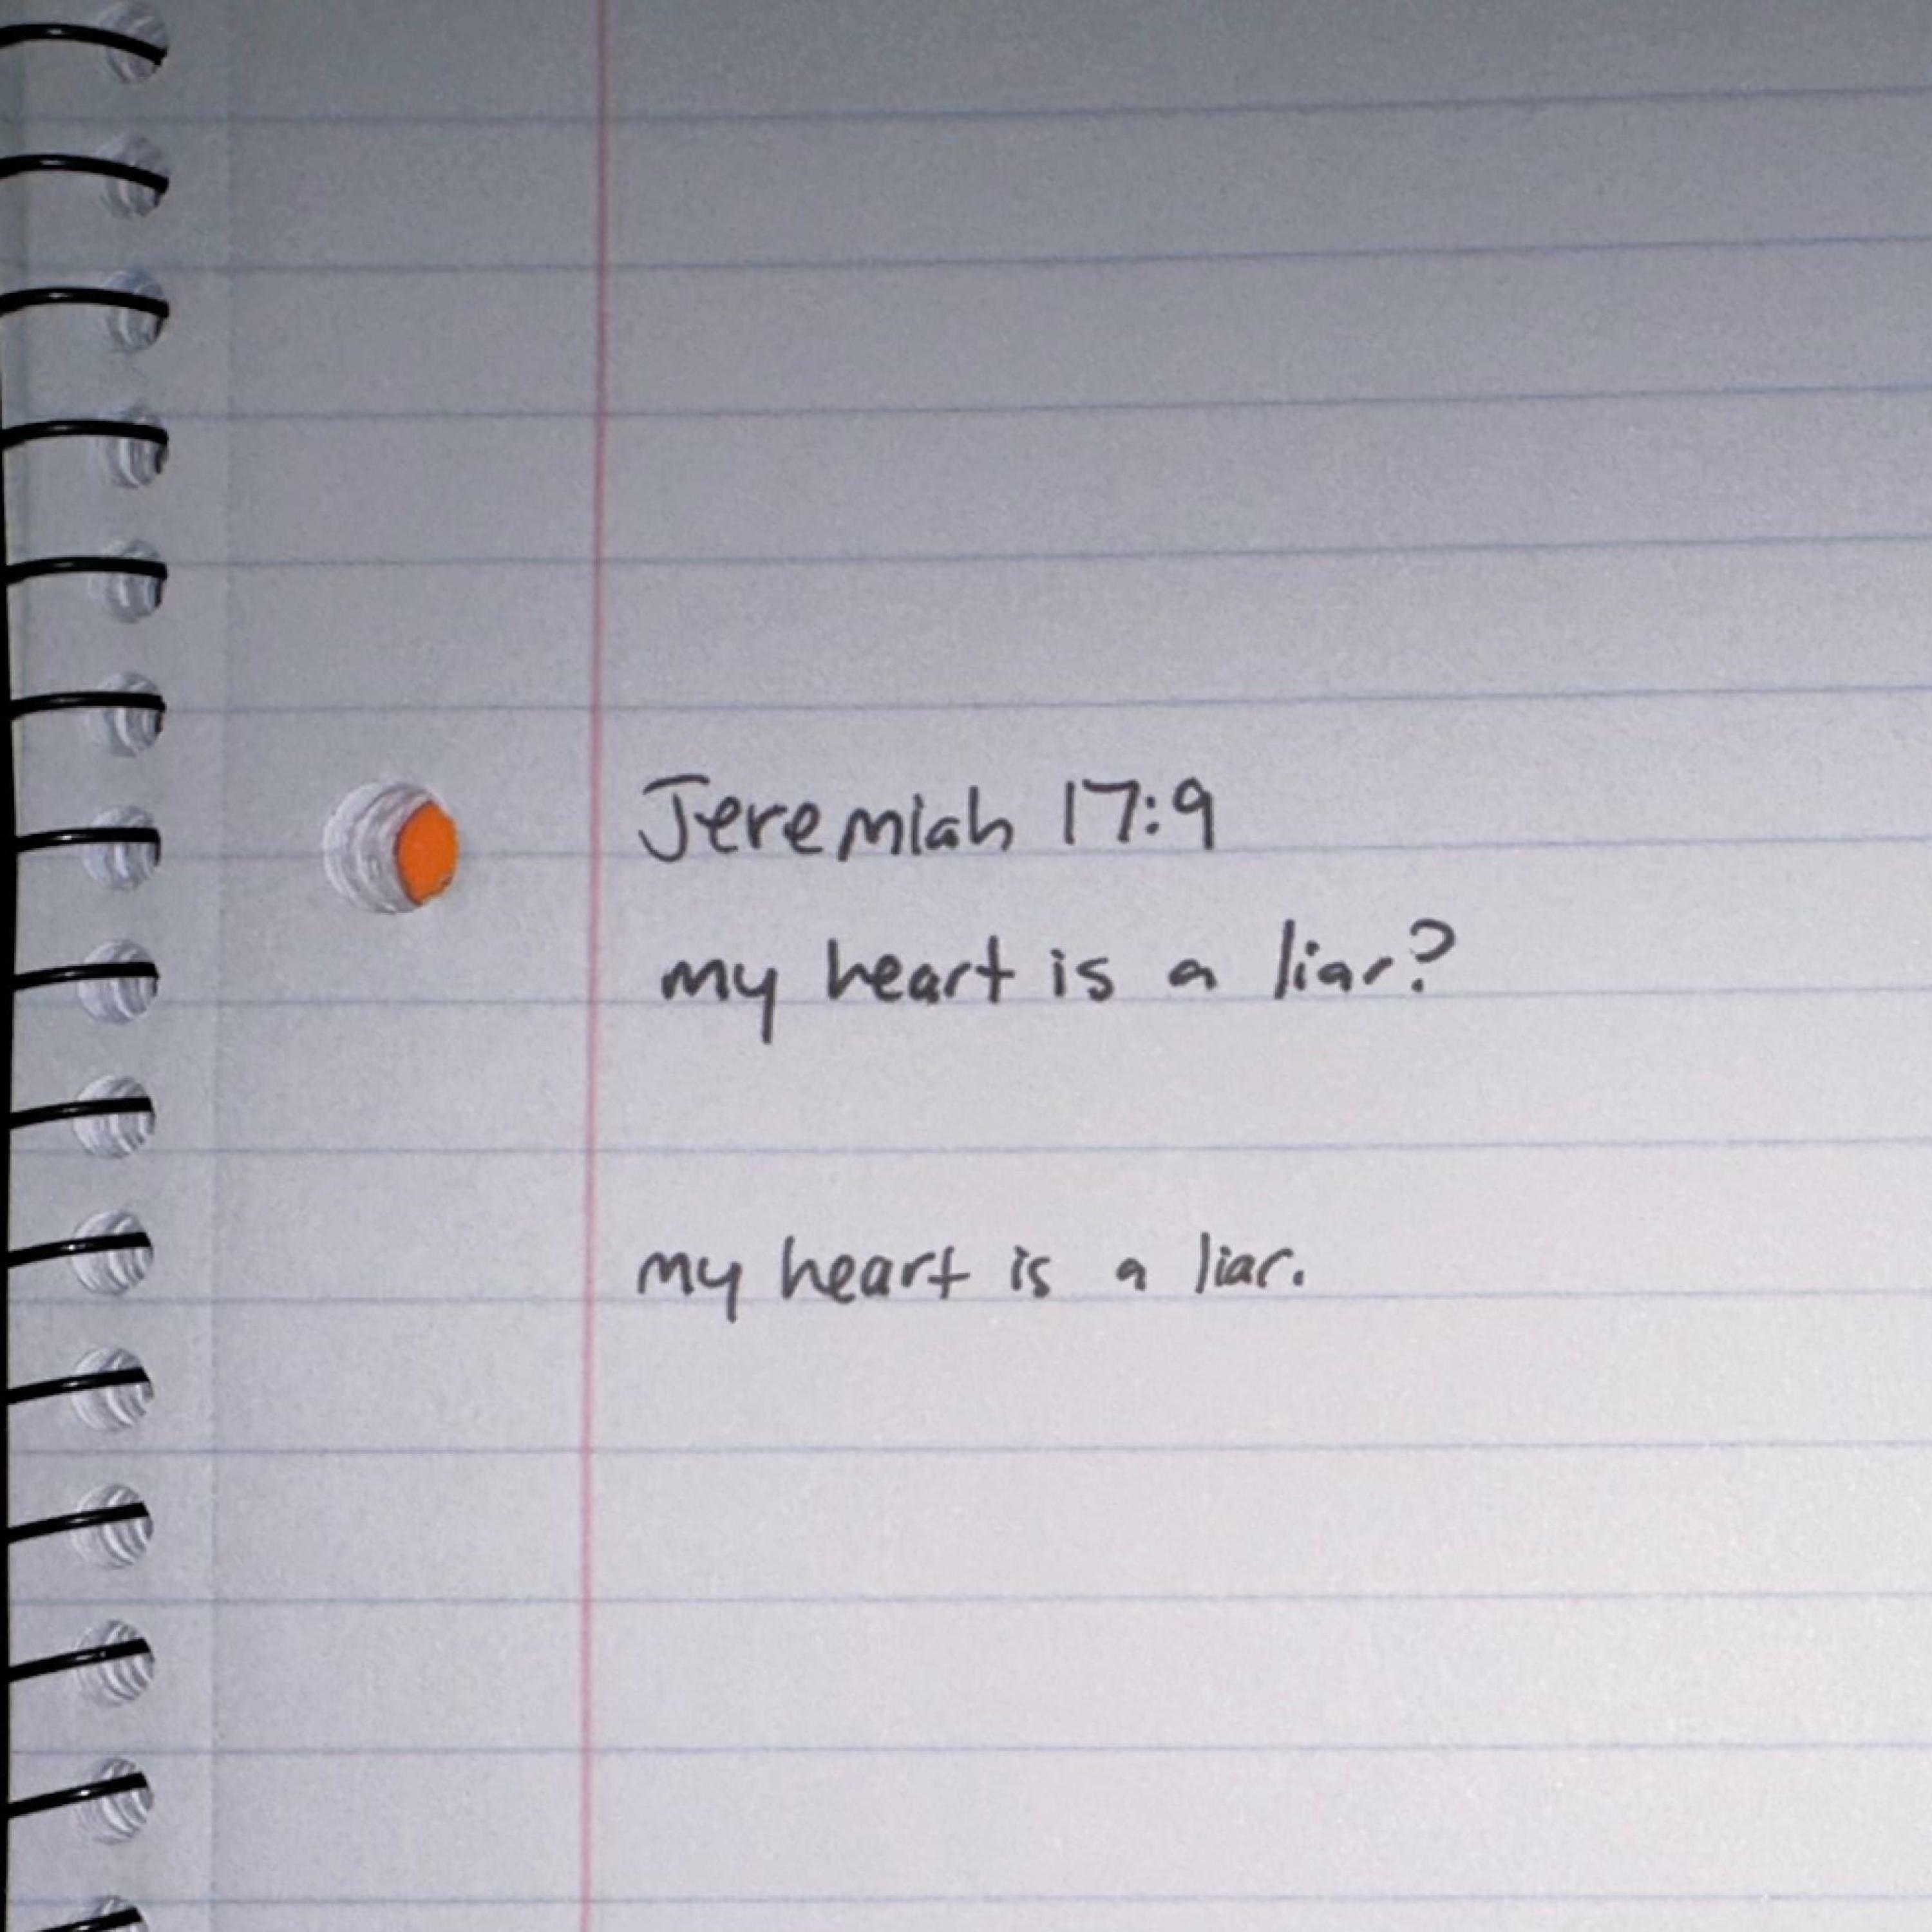 Jeremiah 17:9
my heart is a liar?
my heart is a liar.